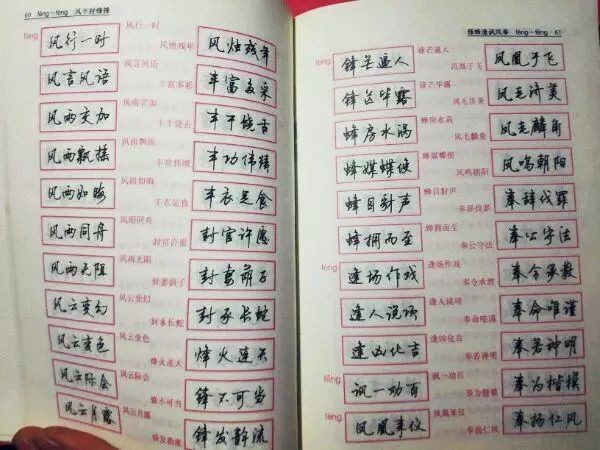 60 fēng—fēng 风丰封烽锋
fēng 风行一时 风行一时
风言风语 风言风语
风雨交加 风雨交加
风雨飘摇 风雨飘摇
风雨如晦 风雨如晦
风雨同舟 风雨同舟
风雨无阻 风雨无阻
风云变幻 风云变幻
风云变色 风云变色
风云际会 风云际会
风云月露 风云月露
风烛残年 风烛残年
丰富多彩 丰富多采
丰干饶舌 丰干饶舌
丰功伟绩 丰功伟绩
丰衣足食 丰衣足食
封官许愿 封官许愿
封妻荫子 封妻荫子
封豕长蛇 封豕长蛇
烽火连天 烽火连天
锋不可当 锋不可当
锋发韵流 锋发韵流
锋蜂逢讽凤奉 fēng—fèng 61
fēng 锋芒逼人 锋芒逼人
锋芒毕露 锋芒毕露
蜂房水涡 蜂房水涡
蜂媒蝶使 蜂媒蝶使
蜂目豺声 蜂目豺声
蜂拥而至 蜂拥而至
féng 逢场作戏 逢场作戏
逢人说项 逢人说项
逢凶化吉 逢凶化吉
fěng 讽一劝百 讽一劝百
fèng 凤凰来仪 凤凰来仪
凤凰于飞 凤凰于飞
凤毛济美 凤毛济美
凤毛麟角 凤毛麟角
凤鸣朝阳 凤鸣朝阳
奉辞伐罪 奉辞伐罪
奉公守法 奉公守法
奉令承教 奉令承教
奉命唯谨 奉命唯谨
奉若神明 奉若神明
奉为楷模 奉为楷模
奉扬仁风 奉扬仁风